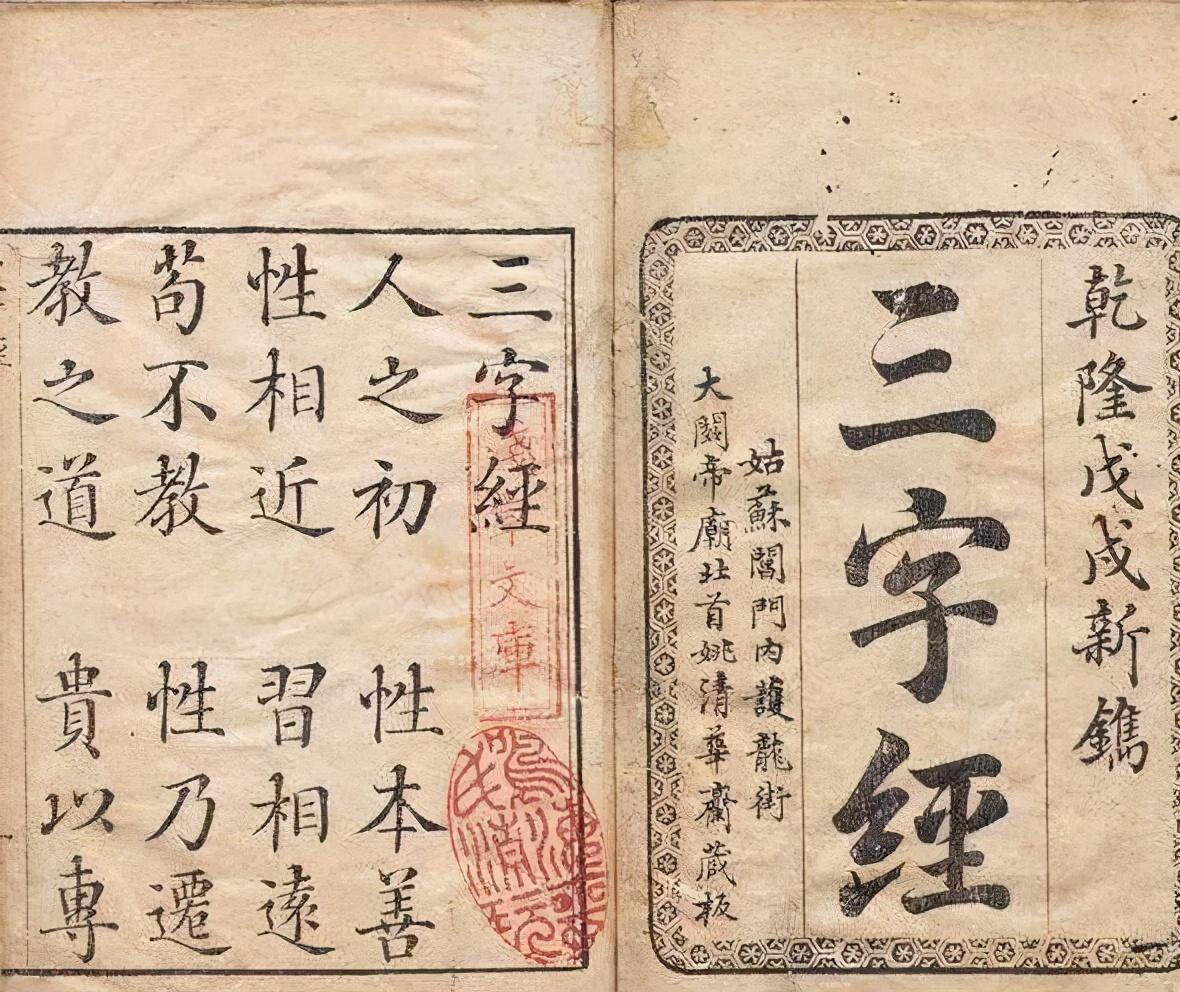 乾隆戊戌新鐫
三字經
姑蘇閶門內護龍街
大關帝廟北首姚清華齋蔵板
三字經
人之初 性本善
性相近 習相遠
苟不教 性乃遷
教之道 貴以專
文庫